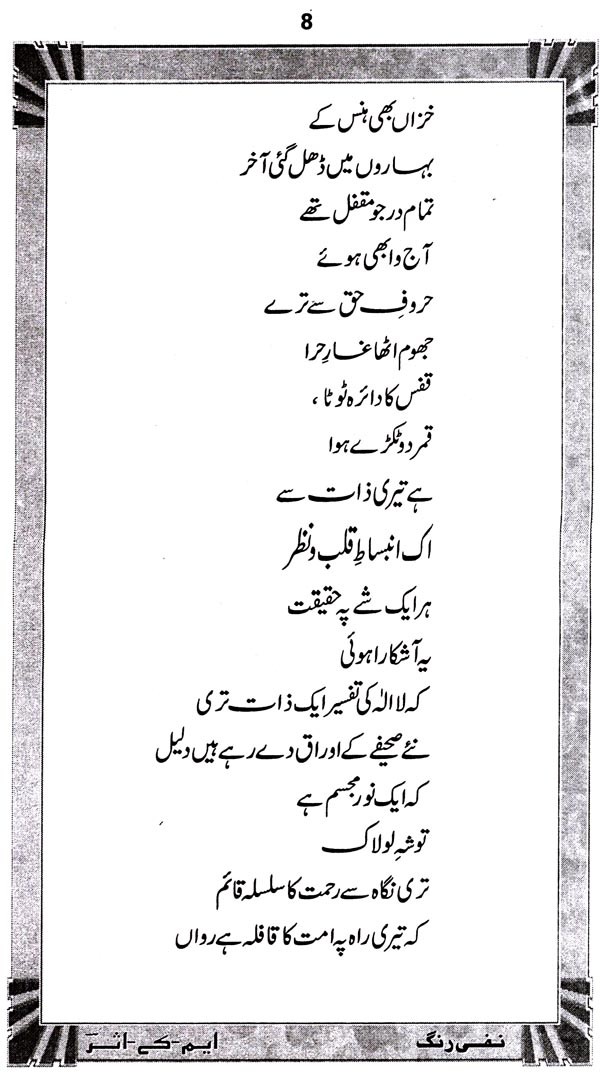 8
خزاں بھی ہنس کے
بہاروں میں ڈھل گئی آخر
تمام در جو مقفل تھے
آج وا بھی ہوئے
حروفِ حق سے ترے
جھوم اٹھا غارِ حرا
قفس کا دائرہ ٹوٹا،
قمر دو ٹکڑے ہوا
ہے تیری ذات سے
اک انبساطِ قلب و نظر
ہر ایک شے پہ حقیقت
یہ آشکارا ہوئی
کہ لا الٰہ کی تفسیر ایک ذات تری
نئے صحیفے کے اوراق دے رہے ہیں دلیل
کہ ایک نور مجسم ہے
تو شہِ لولاک
تری نگاہ سے رحمت کا سلسلہ قائم
کہ تیری راہ پہ امت کا قافلہ ہے رواں
نفی رنگ
ایم-کے-اثرؔ